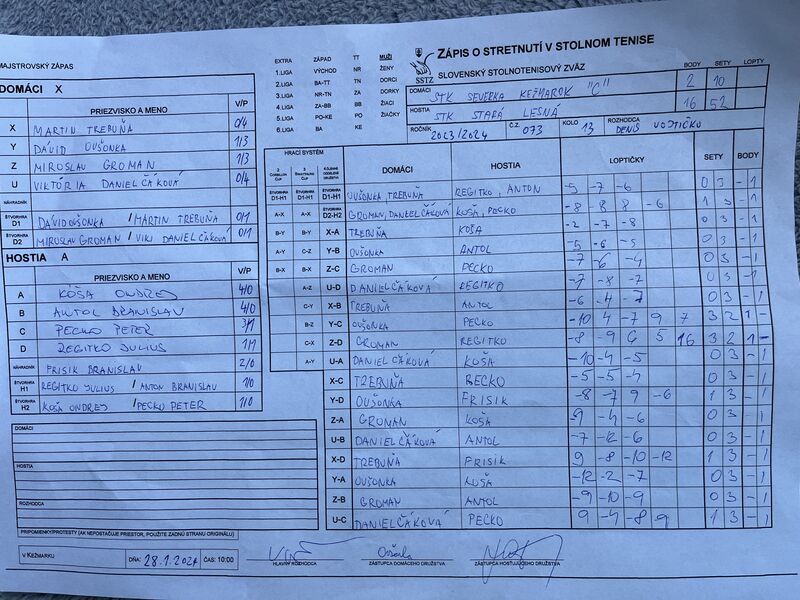 MAJSTROVSKÝ ZÁPAS
DOMÁCI X
PRIEZVISKO A MENO V/P
X MARTIN TREBUŇA 0/4
Y DÁVID OUŠONKA 1/3
Z MIROSLAV GROMAN 1/3
U VIKTÓRIA DANIELČÁKOVÁ 0/4
NÁHRADNÍK
ŠTVORHRA D1 DÁVID OUŠONKA / MARTIN TREBUŇA 0/1
ŠTVORHRA D2 MIROSLAV GROMAN / VIKI DANIELČÁKOVÁ 0/1
HOSTIA A
PRIEZVISKO A MENO V/P
A KOŠA ONDREJ 4/0
B ANTOL BRANISLAV 4/0
C PECKO PETER 3/1
D REGITKO JULIUS 1/1
NÁHRADNÍK FRISIK BRANISLAV 2/0
ŠTVORHRA H1 REGITKO JULIUS / ANTON BRANISLAV 1/0
ŠTVORHRA H2 KOŠA ONDREJ / PECKO PETER 1/0
DOMÁCI:
HOSTIA:
ROZHODCA:
PRIPOMIENKY/PROTESTY (AK NEPOSTAČUJE PRIESTOR, POUŽITE ZADNÚ STRANU ORIGINÁLU)
V KEŽMARKU DŇA: 28.1.2024 ČAS: 10:00
EXTRA ZÁPAD TT MUŽI
1.LIGA VÝCHOD NR ŽENY
2.LIGA BA-TT TN DORCI
3.LIGA NR-TN ZA DORKY
4.LIGA ZA-BB BB ŽIACI
5.LIGA PO-KE PO ŽIAČKY
6.LIGA BA KE
SSTZ
ZÁPIS O STRETNUTÍ V STOLNOM TENISE
SLOVENSKÝ STOLNOTENISOVÝ ZVÄZ
BODY SETY LOPTY
DOMÁCI STK SEVERKA KEŽMAROK "C" 2 10
HOSTIA STK STARÁ LESNÁ 16 52
ROČNÍK 2023/2024 Č.Z. 073 KOLO 13 ROZHODCA DENIS VOJTIČKO
HRACÍ SYSTÉM DOMÁCI HOSTIA LOPTIČKY SETY BODY
ŠTVORHRA D1-H1 ŠTVORHRA D1-H1 ŠTVORHRA D1-H1 OUŠONKA, TREBUŇA REGITKO, ANTON -5 -7 -6 0 3 - 1
A-X A-X ŠTVORHRA D2-H2 GROMAN, DANIELČÁKOVÁ KOŠA, PECKO -8 -8 8 -6 1 3 - 1
B-Y B-Y X-A TREBUŇA KOŠA -2 -7 -8 0 3 - 1
A-Y C-Z Y-B OUŠONKA ANTOL -5 -6 -5 0 3 - 1
B-X B-X Z-C GROMAN PECKO -7 -6 -4 0 3 - 1
A-Z U-D DANIELČÁKOVÁ REGITKO -7 -8 -7 0 3 - 1
C-Y X-B TREBUŇA ANTOL -6 -4 -7 0 3 - 1
B-Z Y-C OUŠONKA PECKO -10 4 -7 9 7 3 2 1 -
C-X Z-D GROMAN REGITKO -8 -9 6 5 16 3 2 1 -
A-Y U-A DANIELČÁKOVÁ KOŠA -10 -4 -5 0 3 - 1
X-C TREBUŇA PECKO -5 -5 -4 0 3 - 1
Y-D OUŠONKA FRISIK -8 -7 9 -6 1 3 - 1
Z-A GROMAN KOŠA -9 -4 -6 0 3 - 1
U-B DANIELČÁKOVÁ ANTOL -7 -12 -6 0 3 - 1
X-D TREBUŇA FRISIK 9 -8 -10 -12 1 3 - 1
Y-A OUŠONKA KOŠA -12 -2 -7 0 3 - 1
Z-B GROMAN ANTOL -9 -10 -9 0 3 - 1
U-C DANIELČÁKOVÁ PECKO 9 -4 -8 -9 1 3 - 1
HLAVNÝ ROZHODCA ZÁSTUPCA DOMÁCEHO DRUŽSTVA ZÁSTUPCA HOSŤUJÚCEHO DRUŽSTVA